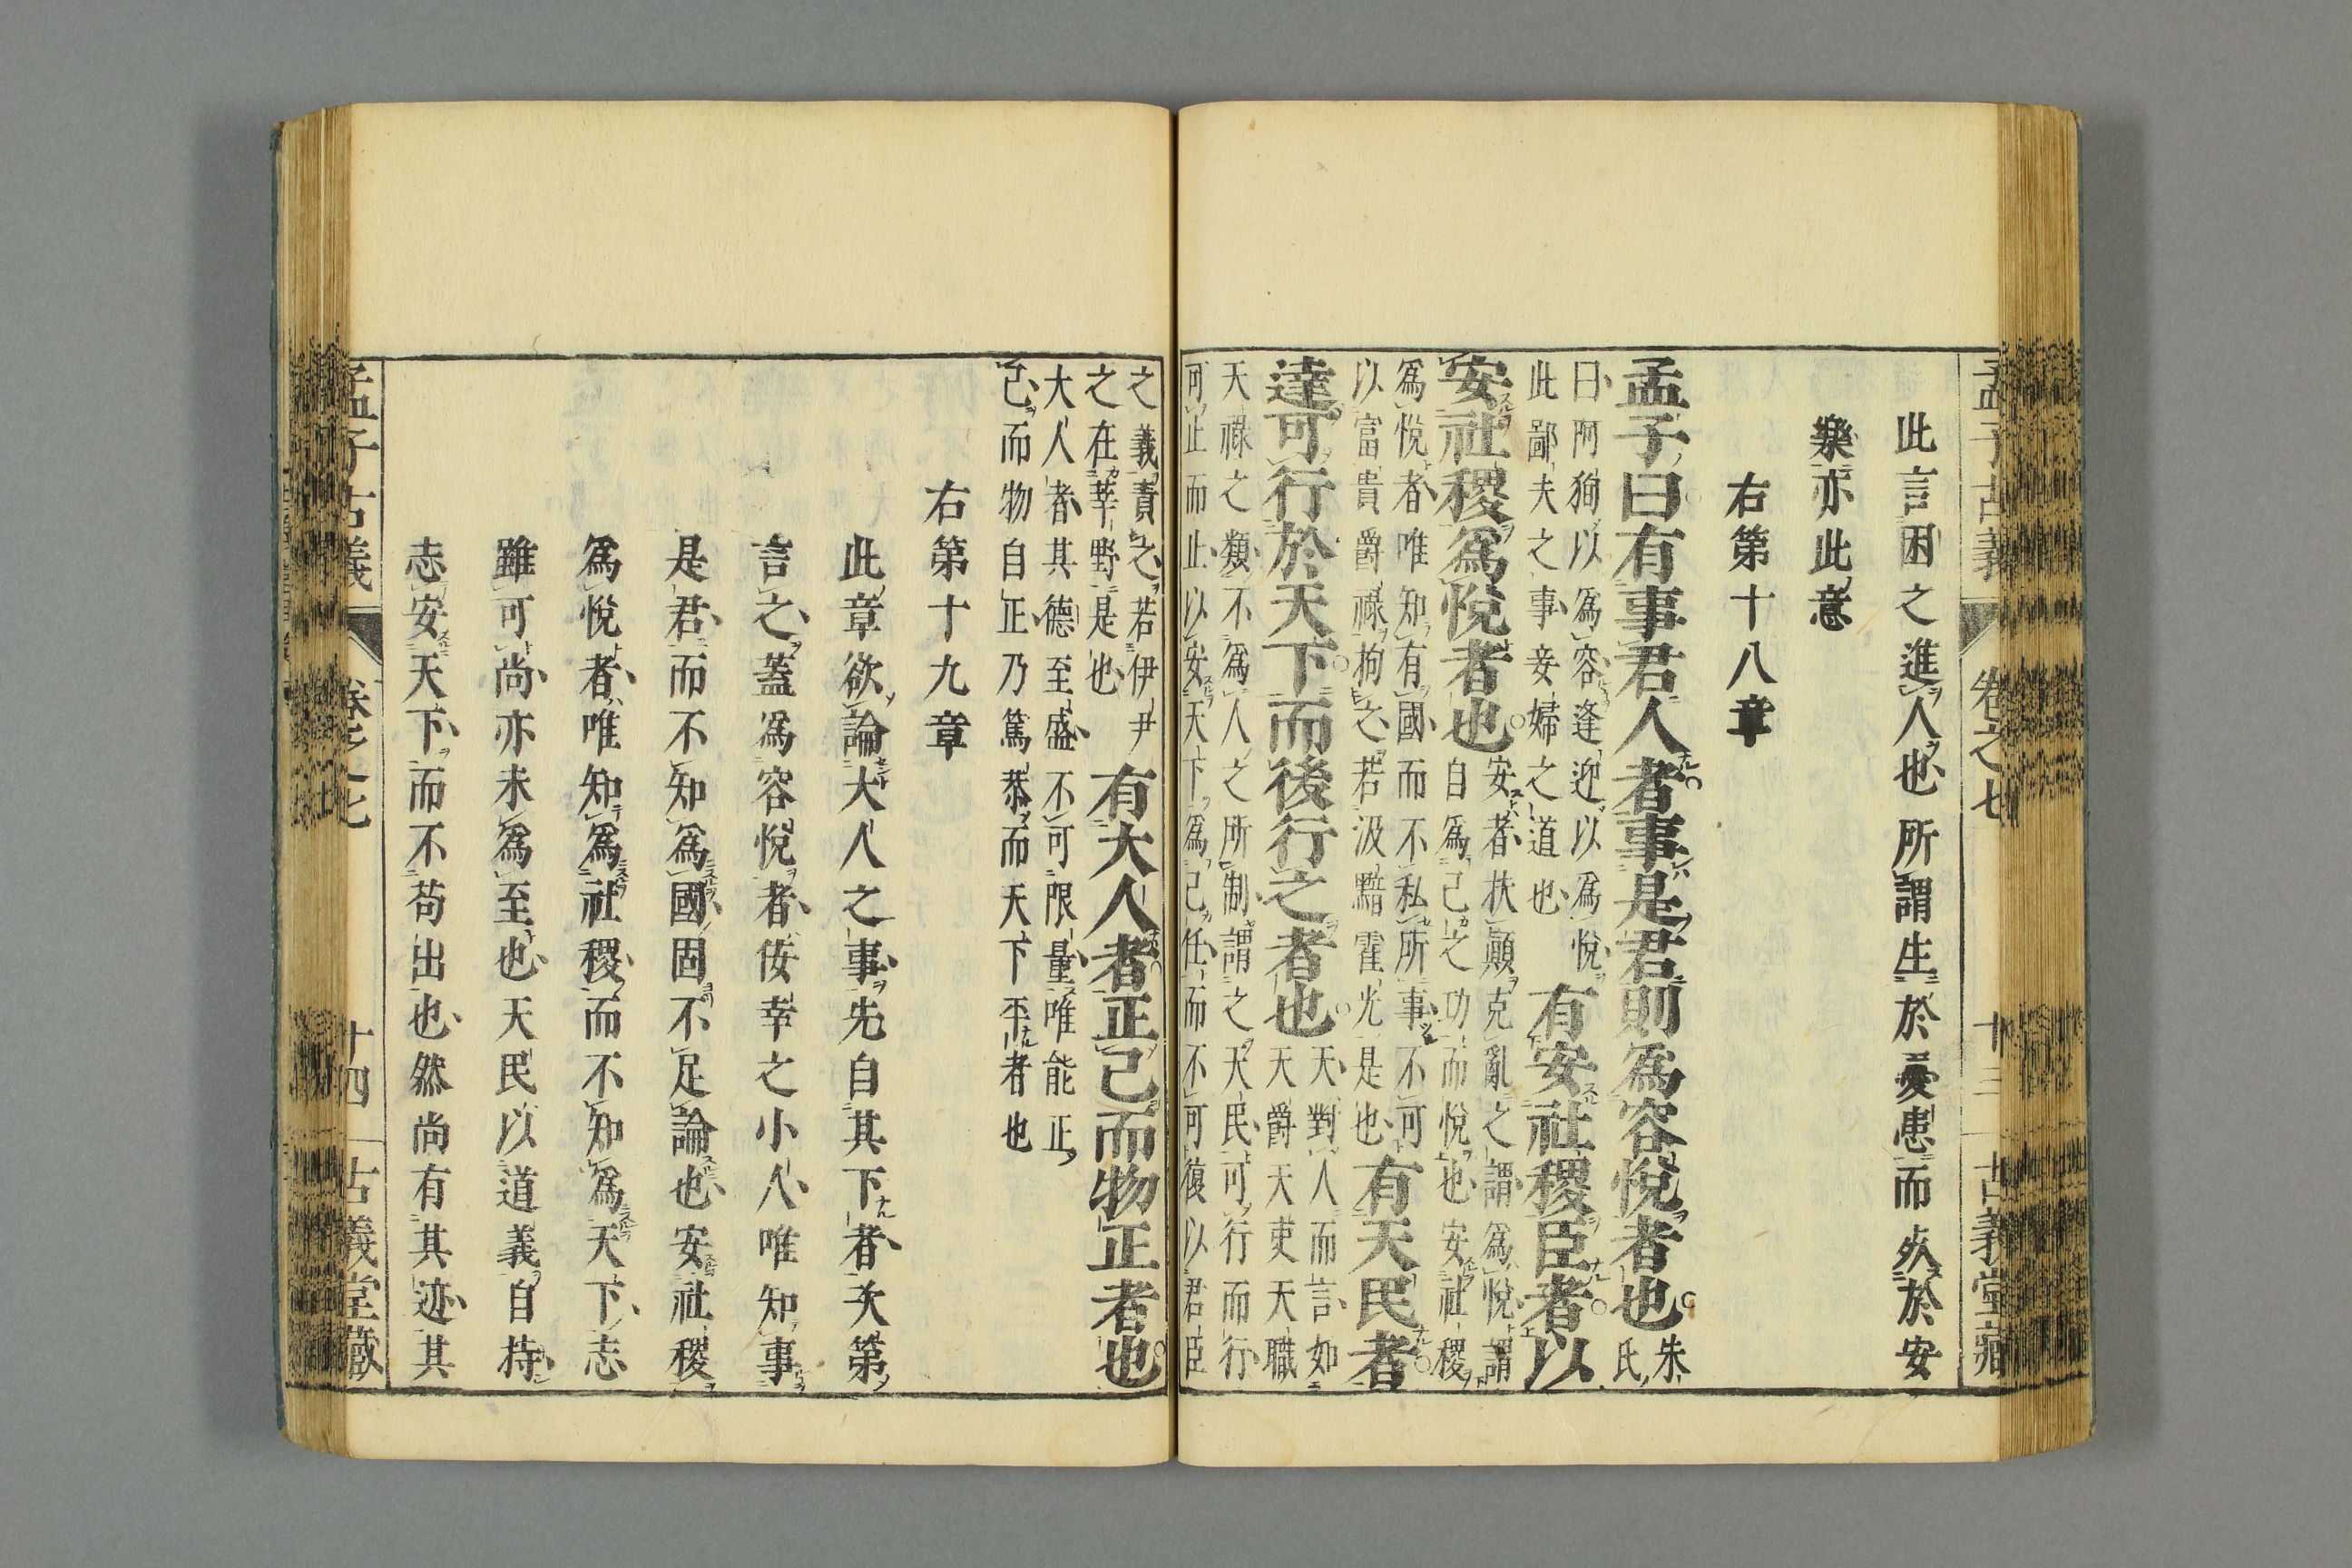 孟子古義 卷之七 十三 古義堂藏
此言困之進人也所謂生於憂患而死於安
樂亦此意
右第十八章
孟子曰有事君人者事是君則爲容悅者也朱氏
曰阿狥以爲容逢迎以爲悅
此鄙夫之事妾婦之道也
有安社稷臣者以
安社稷爲悅者也
安者扶顚克亂之謂爲悅謂
自爲己之功而悅也安社稷
爲悅者唯知有國而不私所事不可
以富貴爵祿拘之若汲黯霍光是也
有天民者
達可行於天下而後行之者也
天對人而言如
天爵天吏天職
天祿之類不爲人之所制謂之天民可行而行
可止而止以安天下爲己任而不可復以君臣
之義責之若伊尹
之在莘野是也
有大人者正己而物正者也
大人者其德至盛不可限量唯能正
己而物自正乃篤恭而天下平者也
右第十九章
此章欲論大人之事先自其下者次第
言之蓋爲容悅者佞幸之小人唯知事
是君而不知爲國固不足論也安社稷
爲悅者唯知爲社稷而不知爲天下志
雖可尚亦未爲至也天民以道義自持
志安天下而不苟出也然尚有其迹其
孟子古義 卷之七 十四 古義堂藏